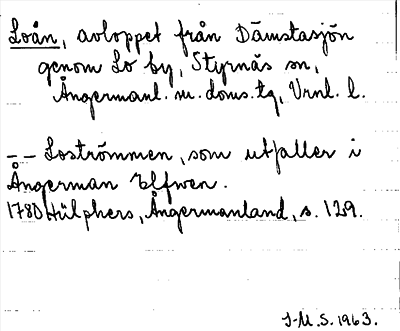 Loån, avloppet från Dämstasjön
genom Lo by, Styrnäs sn,
Ångermanl. m. doms. tg, Vrnl. l.
– – Loströmmen, som utfaller i
Ångerman Elfwen.
1780 Hülphers, Ångermanland, s. 129.
J-M. S. 1963.